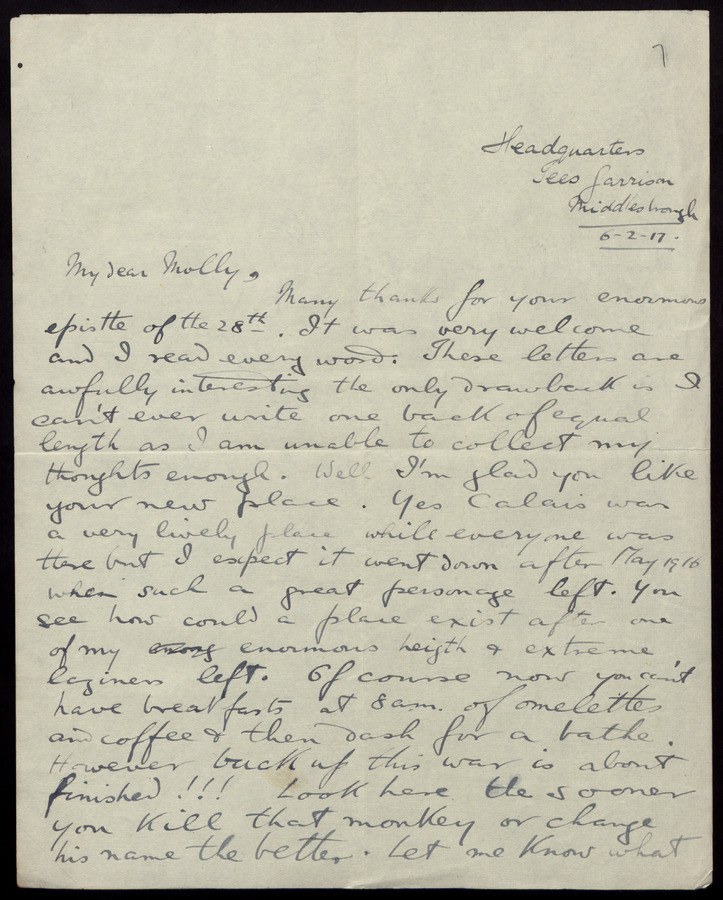 7
Headquarters
Tees Garrison
Middlesbrough
6-2-17.
My dear Molly,
Many thanks for your enormous
epistte of the 28th. It was very welcome
and I read every word. These letters are
awfully interesting the only drawback is I
can't ever write one back of equal
length as I am unable to collect my
thoughts enough. Well I'm glad you like
your new place. Yes Calais was
a very lively place while everyone was
there but I expect it went down after May 1916
when such a great personage left. You
see how could a place exist after one
of my enormous heigth & extreme
laziness left. Of course now you can't
have breakfasts at 8 am. of omelettes
and coffee & then dash for a bathe.
However buck up this war is about
finished!!! Look here the sooner
you kill that monkey or change
his name the better. Let me know what